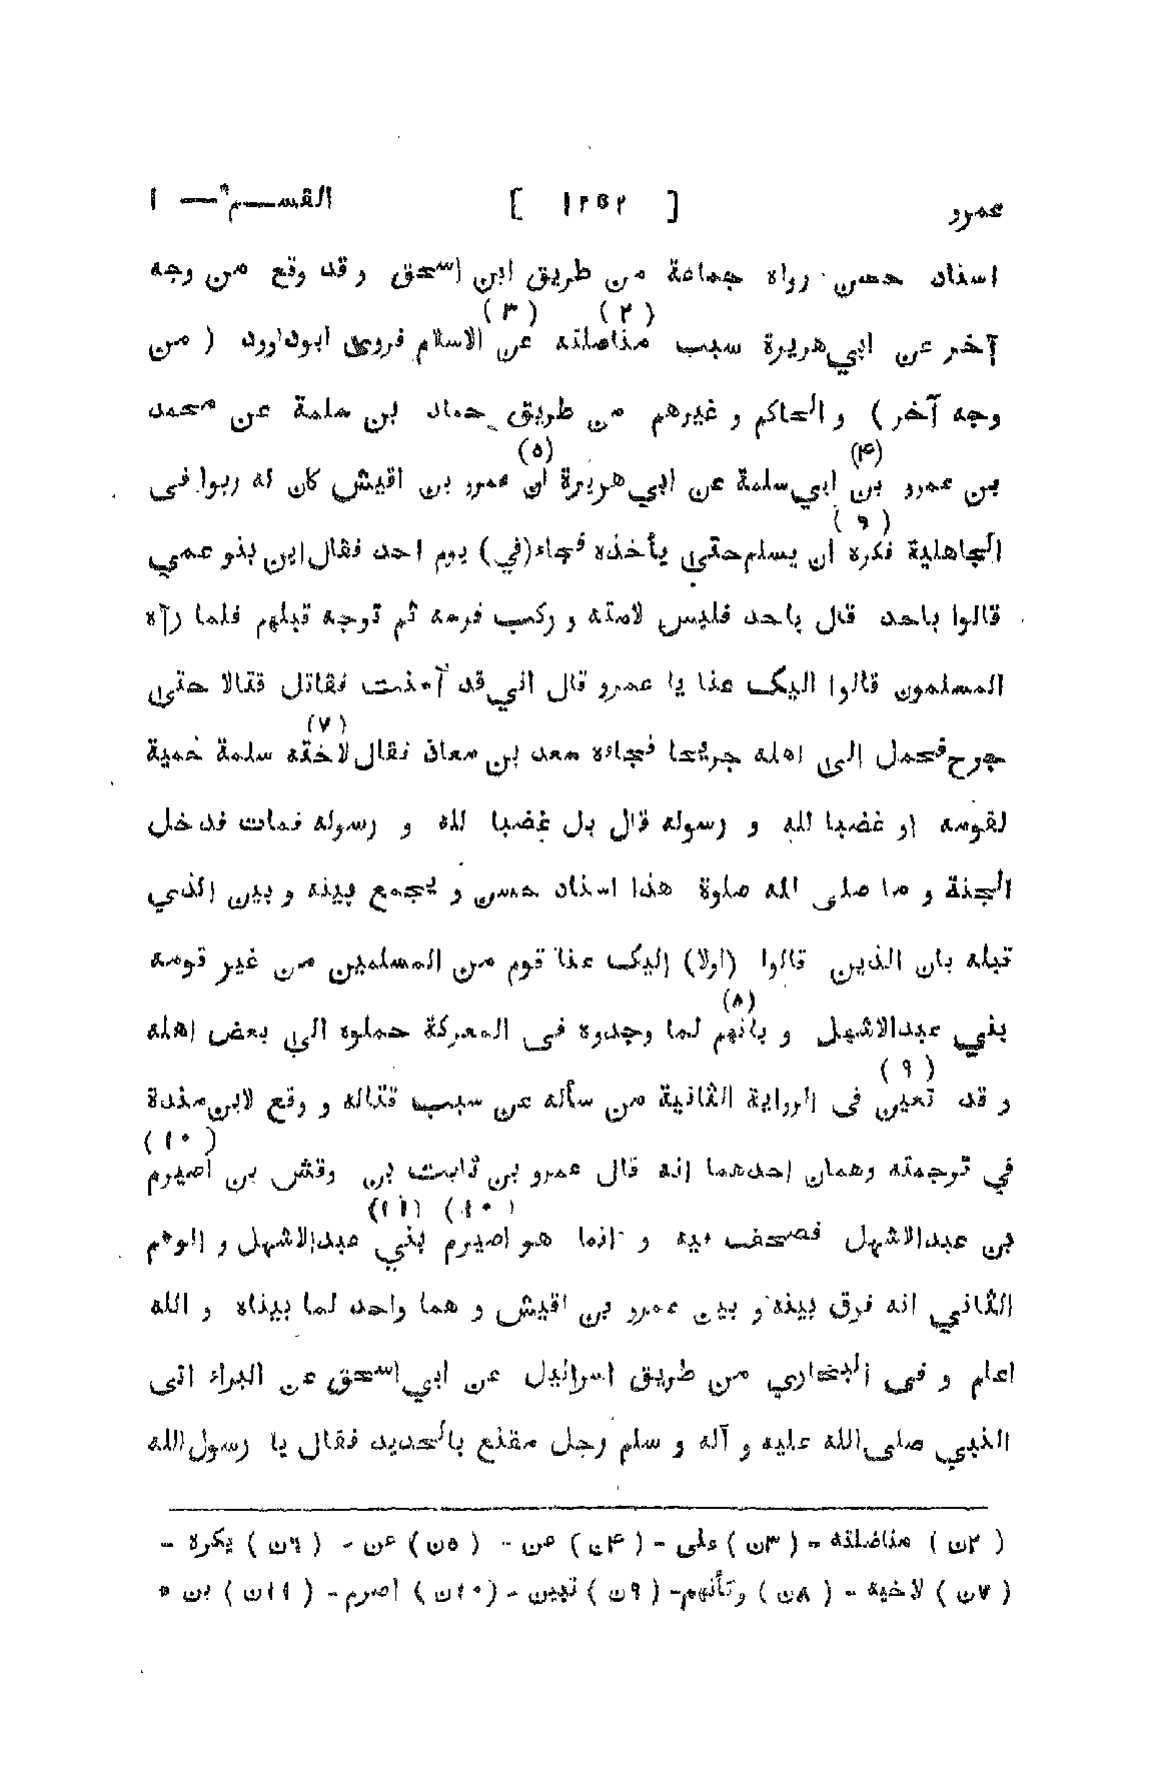 عمرو [ ١٢٥٢ ] القسم — ١
اسناد حسن رواه جماعة من طريق ابن اسحق و قد وقع من وجه
آخر عن ابي هريرة سبب مناصلته (٢) عن (٣) الاسلام فروى ابوداوود ( من
وجه آخر ) و الحاكم و غيرهم من طريق حماد بن سلمة عن محمد
بن عمرو بن (۴) ابي سلمة عن ابي هريرة ان (٥) عمرو بن اقيش كان له ربوا فى
الجاهلية فكره (٦) ان يسلم حتى يأخذه فجاء (في) يوم احد فقال اين بنو عمي
قالوا باحد قال باحد فلبس لامته و ركب فرسه ثم توجه قبلهم فلما رآه
المسلمون قالوا اليك عنا يا عمرو قال اني قد آمنت فقاتل قتالا حتى
جرح فحمل الى اهله جريحا فجاءه سعد بن معاذ فقال لاخته (٧) سلمة حمية
لقومه او غضبا لله و رسوله قال بل غضبا لله و رسوله فمات فدخل
الجنة و ما صلى الله صلوة هذا اسناد حسن و يجمع بينه و بين الذي
قبله بان الذين قالوا (اولا) إليك عنا قوم من المسلمين من غير قومه
بني عبدالاشهل و بانهم (٨) لما وجدوه فى المعركة حملوه الى بعض اهله
و قد تعين (٩) فى الرواية الثانية من سأله عن سبب قتاله و وقع لابن مندة
في ترجمته وهمان احدهما انه قال عمرو بن ثابت بن وقش بن اصيرم (١٠)
بن عبدالاشهل فصحف فيه و انما هو اصيرم (١٠) بني (١١) عبدالاشهل و الوهم
الثاني انه فرق بينه و بين عمرو بن اقيش و هما واحد لما بيناه و الله
اعلم و فى البخاري من طريق اسرائيل عن ابي اسحق عن البراء اتى
النبي صلى الله عليه و آله و سلم رجل مقنع بالحديد فقال يا رسول الله
( ٢ن ) مناضلته - ( ٣ن ) على - ( ۴ن ) عن - ( ٥ن ) عن - ( ٦ن ) يكره -
( ٧ن ) لاخيه - ( ٨ن ) وتأنهم - ( ٩ن ) تبين - ( ١٠ن ) اصرم - ( ١١ن ) بن *